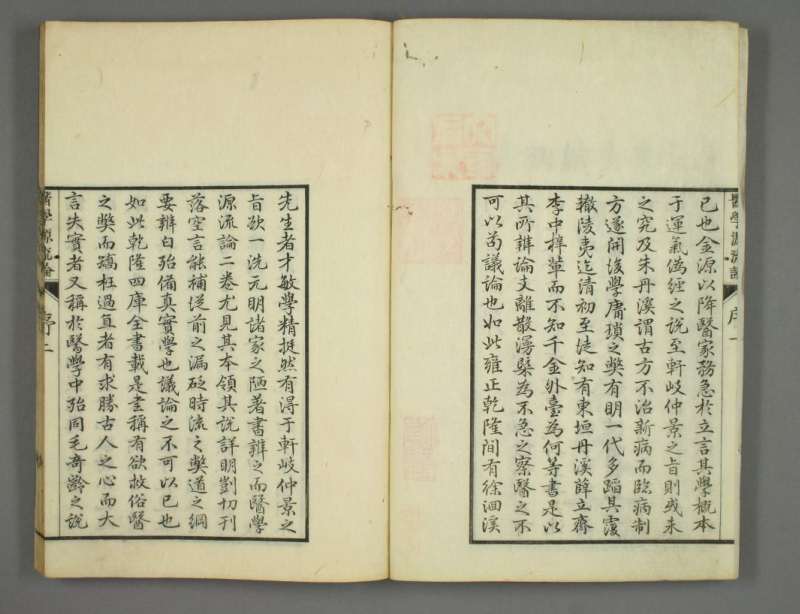 醫學源流論
序一
已也金源以降醫家務急於立言其學概本
于運氣僞經之說至軒岐仲景之旨則或未
之究及朱丹溪謂古方不治新病而臨病制
方遂開後學庸瑣之獘有明一代多蹈其覆
轍陵夷迄清初至徒知有東垣丹溪薛立齋
李中梓軰而不知千金外臺為何等書是以
其所辨論支離散漫槩為不急之察醫之不
可以苟議論也如此雍正乾隆間有徐洄溪
先生者才敏學精挺然有淂于軒岐仲景之
旨欲一洗元明諸家之陋著書辨之而醫學
源流論二卷尤見其本領其說詳明剴切刊
落空言能補從前之漏砭時流之獘道之綱
要辨白殆備真實學也議論之不可以已也
如此乾隆四庫全書載是書稱有欲救俗醫
之獘而矯枉過直者有求勝古人之心而大
言失實者又稱於醫學中殆同毛奇齡之說
醫學源流論
序二